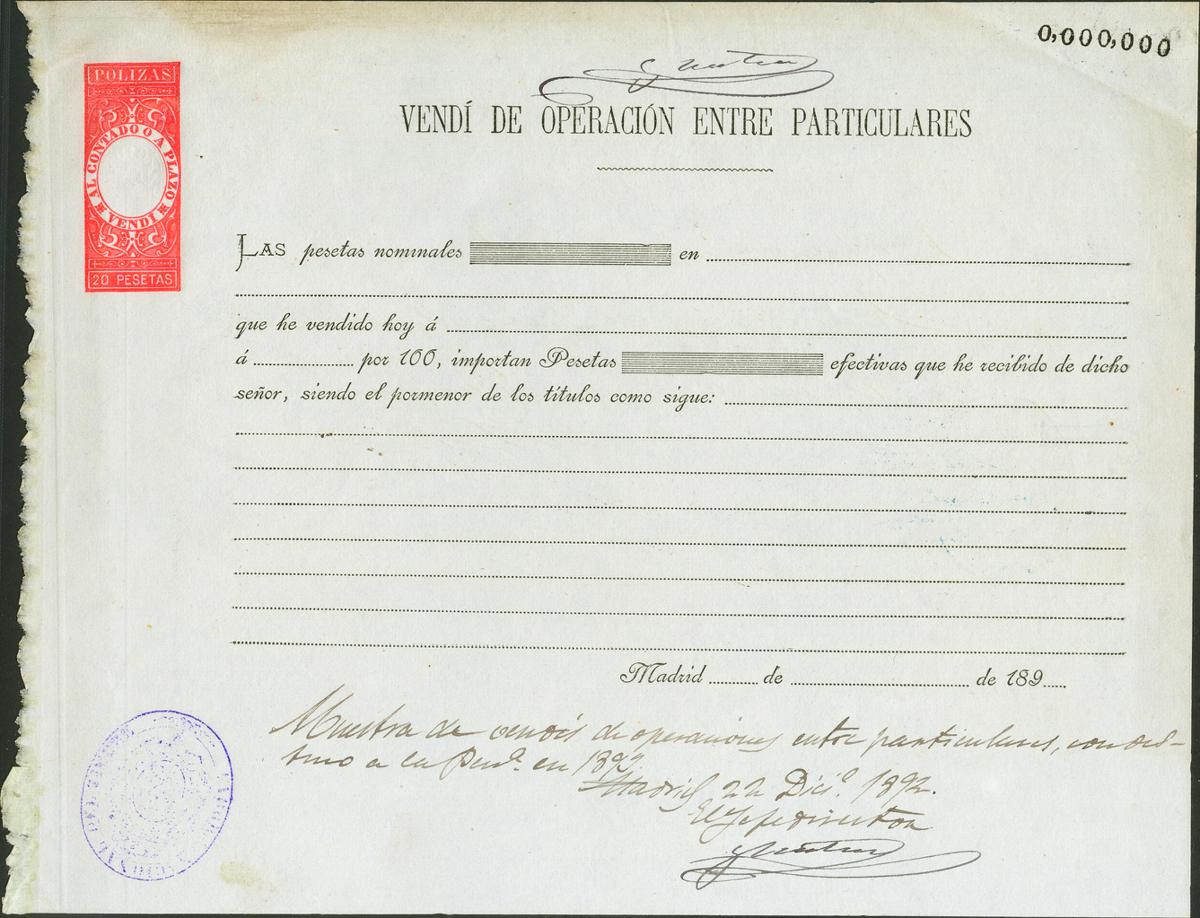 0,000,000
POLIZAS
AL CONTADO O A PLAZO
VENDÍ
20 PESETAS
VENDÍ DE OPERACIÓN ENTRE PARTICULARES
LAS pesetas nominales en
que he vendido hoy á
á por 100, importan Pesetas efectivas que he recibido de dicho
señor, siendo el pormenor de los títulos como sigue:
Madrid de de 189
Muestra de vendís de operaciones entre particulares, con des-
tino a la en 1892
Madrid 22 Dicᵉ. 1892.
El Jefe director